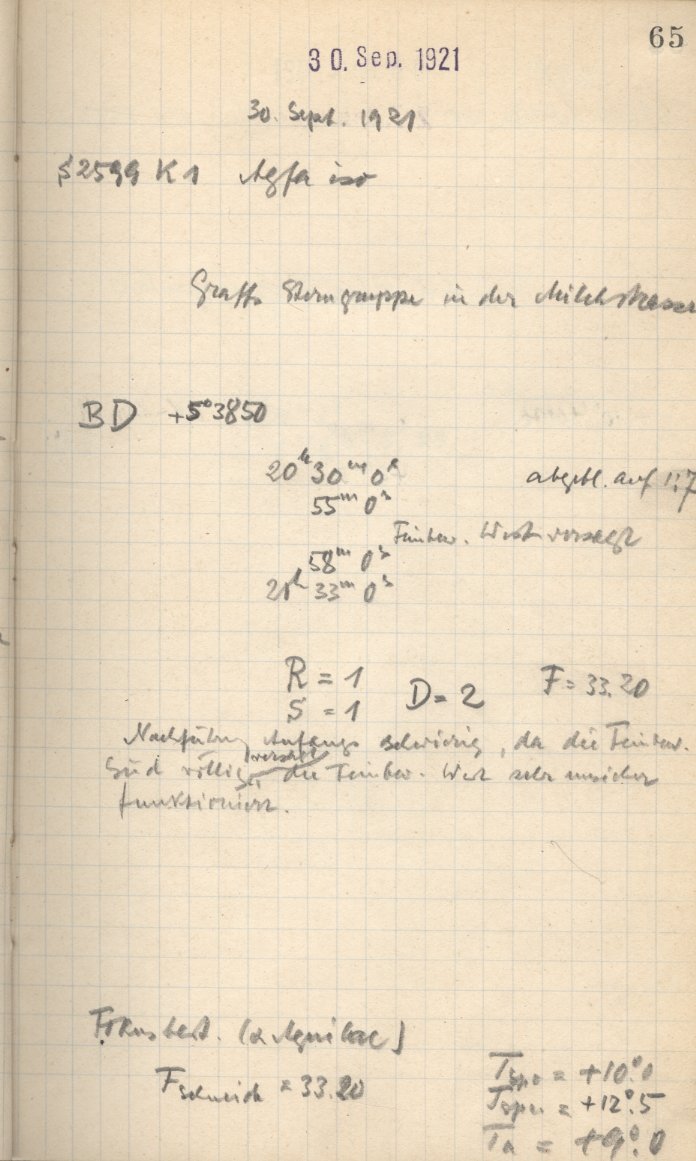 65
30. Sep. 1921
30. Sept. 1921
S2599 K1 Agfa iso
Graffs Sterngruppe in der Milchstrasse
BD +5°3850
20ʰ30ᵐ0ˢ abgebl. auf 1:7
55ᵐ 0ˢ
Feinbew. West versagt
58ᵐ 0ˢ
21ʰ 33ᵐ 0ˢ
R = 1
S = 1
D = 2 F = 33.20
Nachführung Anfangs schwierig, da die Feinbew.
Süd völlig versagt, die Feinbew. West sehr unsicher
funktioniert.
Fokusbest. (α Aquilae)
F = 33.20
= +10°.0
= +12°.5
Tₐ = +9°.0